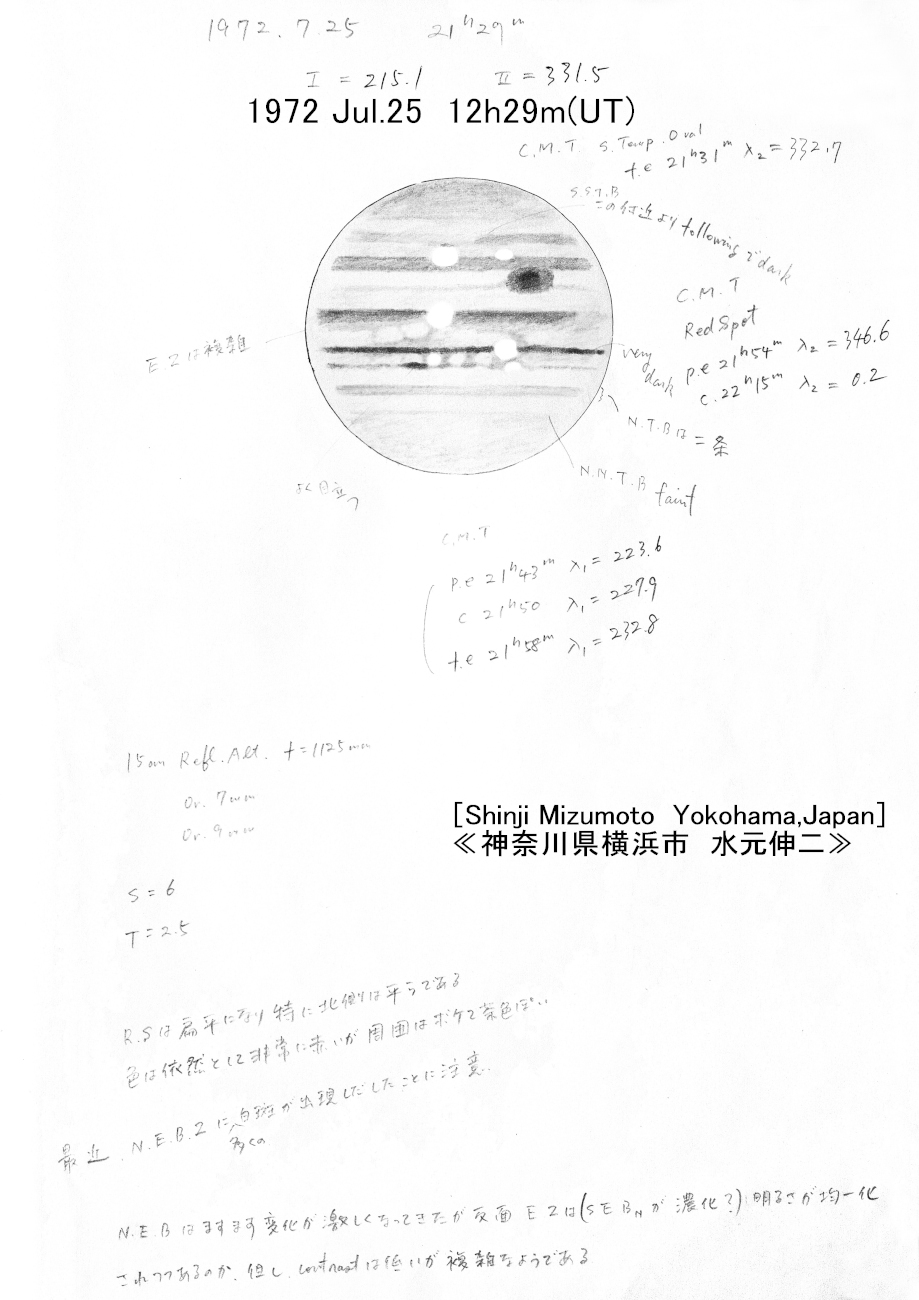 1972. 7. 25 21h29m
I = 215.1 II = 331.5
1972 Jul.25 12h29m(UT)
C.M.T. S.Temp.Oval
f.e 21h31m λ2 = 332.7
S.STB
この付近より following で dark
C.M.T
Red Spot
p.e 21h54m λ2 = 346.6
c. 22h15m λ2 = 0.2
EZは複雑
very
dark
N.T.Bは二条
N.N.T.B faint
よく目立つ
C.M.T
p.e 21h43m λ1 = 223.6
c 21h50 λ1 = 227.9
f.e 21h58m λ1 = 232.8
15cm Refl. Alt. f=1125mm
Or. 7mm
Or. 9mm
[Shinji Mizumoto Yokohama,Japan]
≪神奈川県横浜市 水元伸二≫
S = 6
T = 2.5
R.Sは扁平になり特に北側は平らである
色は依然として非常に赤いが周囲はボケて茶色ぽい
最近、N.E.B.Zに多くの白斑が出現しだしたことに注意.
N.E.Bはますます変化が激しくなってきたが反面EZは(SEBNが濃化?)明るさが均一化
されつつあるのか. 但し、contrastは低いが複雑なようである